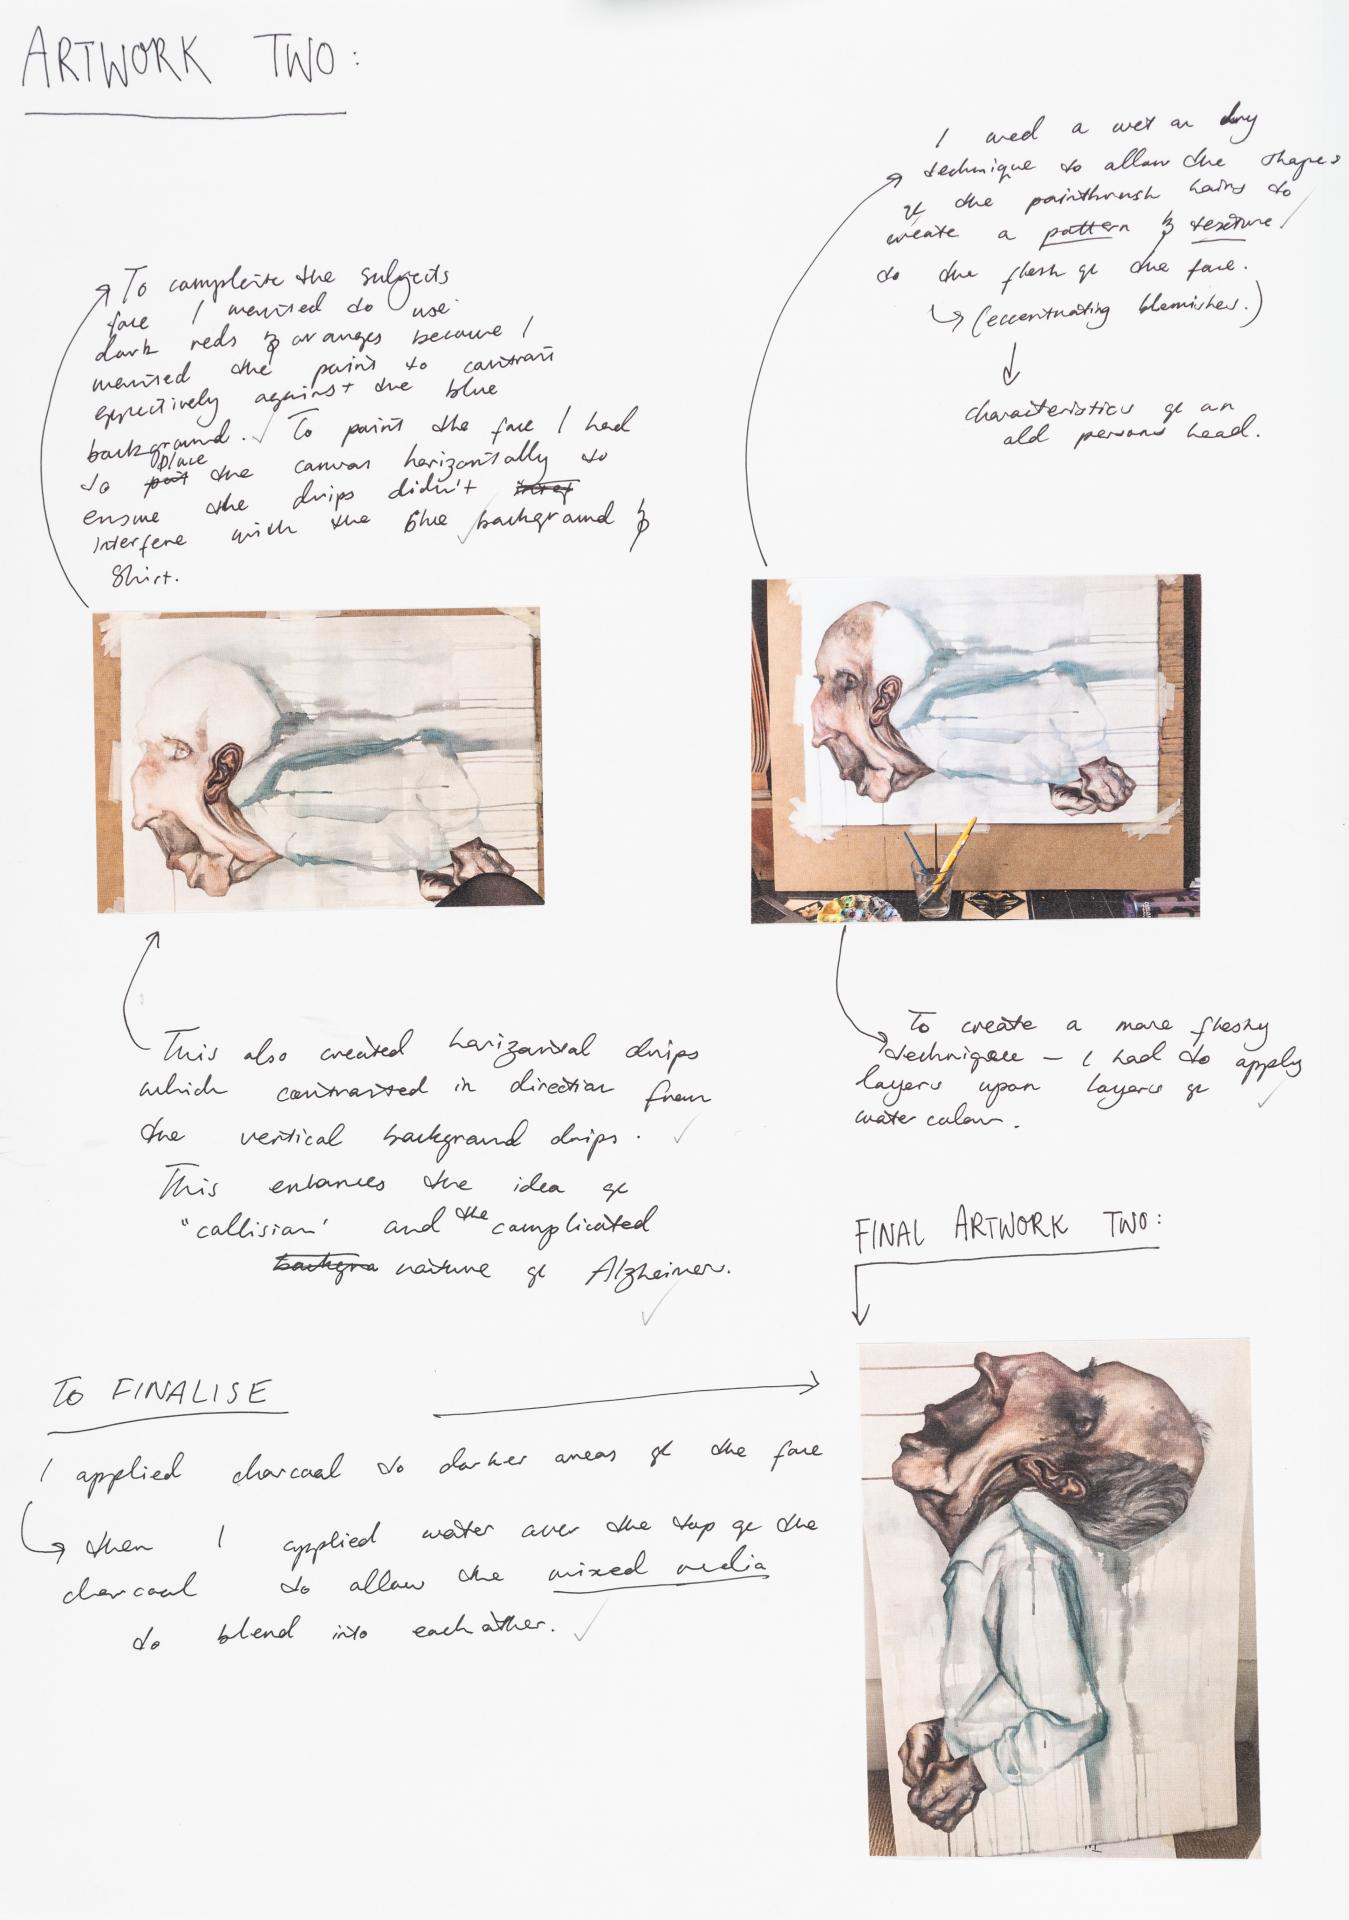 ARTWORK TWO:
To complete the subjects
face I wanted to use
dark reds & oranges because I
wanted the paint to contrast
effectively against the blue
background. To paint the face I had
to place the canvas horizontally to
ensure the drips didn't
interfere with the blue background &
Shirt.
I used a wet on dry
technique to allow the shapes
of the paintbrush hairs to
create a pattern & texture
to the flesh of the face.
(eccentuating blemishes.)
characteristics of an
old persons head.
This also created horizontal drips
which contrasted in direction from
the vertical background drips.
This enhances the idea of
"collision' and the complicated
backgra nature of Alzheimers.
To create a more fleshy
technique – I had to apply
layers upon layers of
water colour.
FINAL ARTWORK TWO:
TO FINALISE
I applied charcoal to darker areas of the face
then I applied water over the top of the
charcoal to allow the mixed media
to blend into eachother.